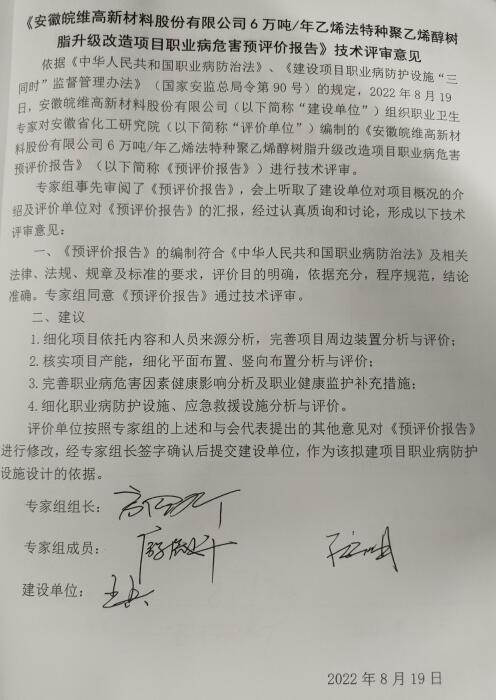 《安徽皖维高新材料股份有限公司6万吨/年乙烯法特种聚乙烯醇树
脂升级改造项目职业病危害预评价报告》技术评审意见
依据《中华人民共和国职业病防治法》、《建设项目职业病防护设施“三
同时”监督管理办法》（国家安监总局令第90号）的规定，2022年8月19
日，安徽皖维高新材料股份有限公司（以下简称“建设单位”）组织职业卫生
专家对安徽省化工研究院（以下简称“评价单位”）编制的《安徽皖维高新材
料股份有限公司6万吨/年乙烯法特种聚乙烯醇树脂升级改造项目职业病危害
预评价报告》（以下简称《预评价报告》）进行技术评审。
专家组事先审阅了《预评价报告》，会上听取了建设单位对项目概况的介
绍及评价单位对《预评价报告》的汇报，经过认真质询和讨论，形成以下技术
评审意见：
一、《预评价报告》的编制符合《中华人民共和国职业病防治法》及相关
法律、法规、规章及标准的要求，评价目的明确，依据充分，程序规范，结论
准确。专家组同意《预评价报告》通过技术评审。
二、建议
1.细化项目依托内容和人员来源分析，完善项目周边装置分析与评价；
2.核实项目产能，细化平面布置、竖向布置分析与评价；
3.完善职业病危害因素健康影响分析及职业健康监护补充措施；
4.细化职业病防护设施、应急救援设施分析与评价。
评价单位按照专家组的上述和与会代表提出的其他意见对《预评价报告》
进行修改，经专家组长签字确认后提交建设单位，作为该拟建项目职业病防护
设施设计的依据。
专家组组长：
专家组成员：
建设单位：
2022年8月19日